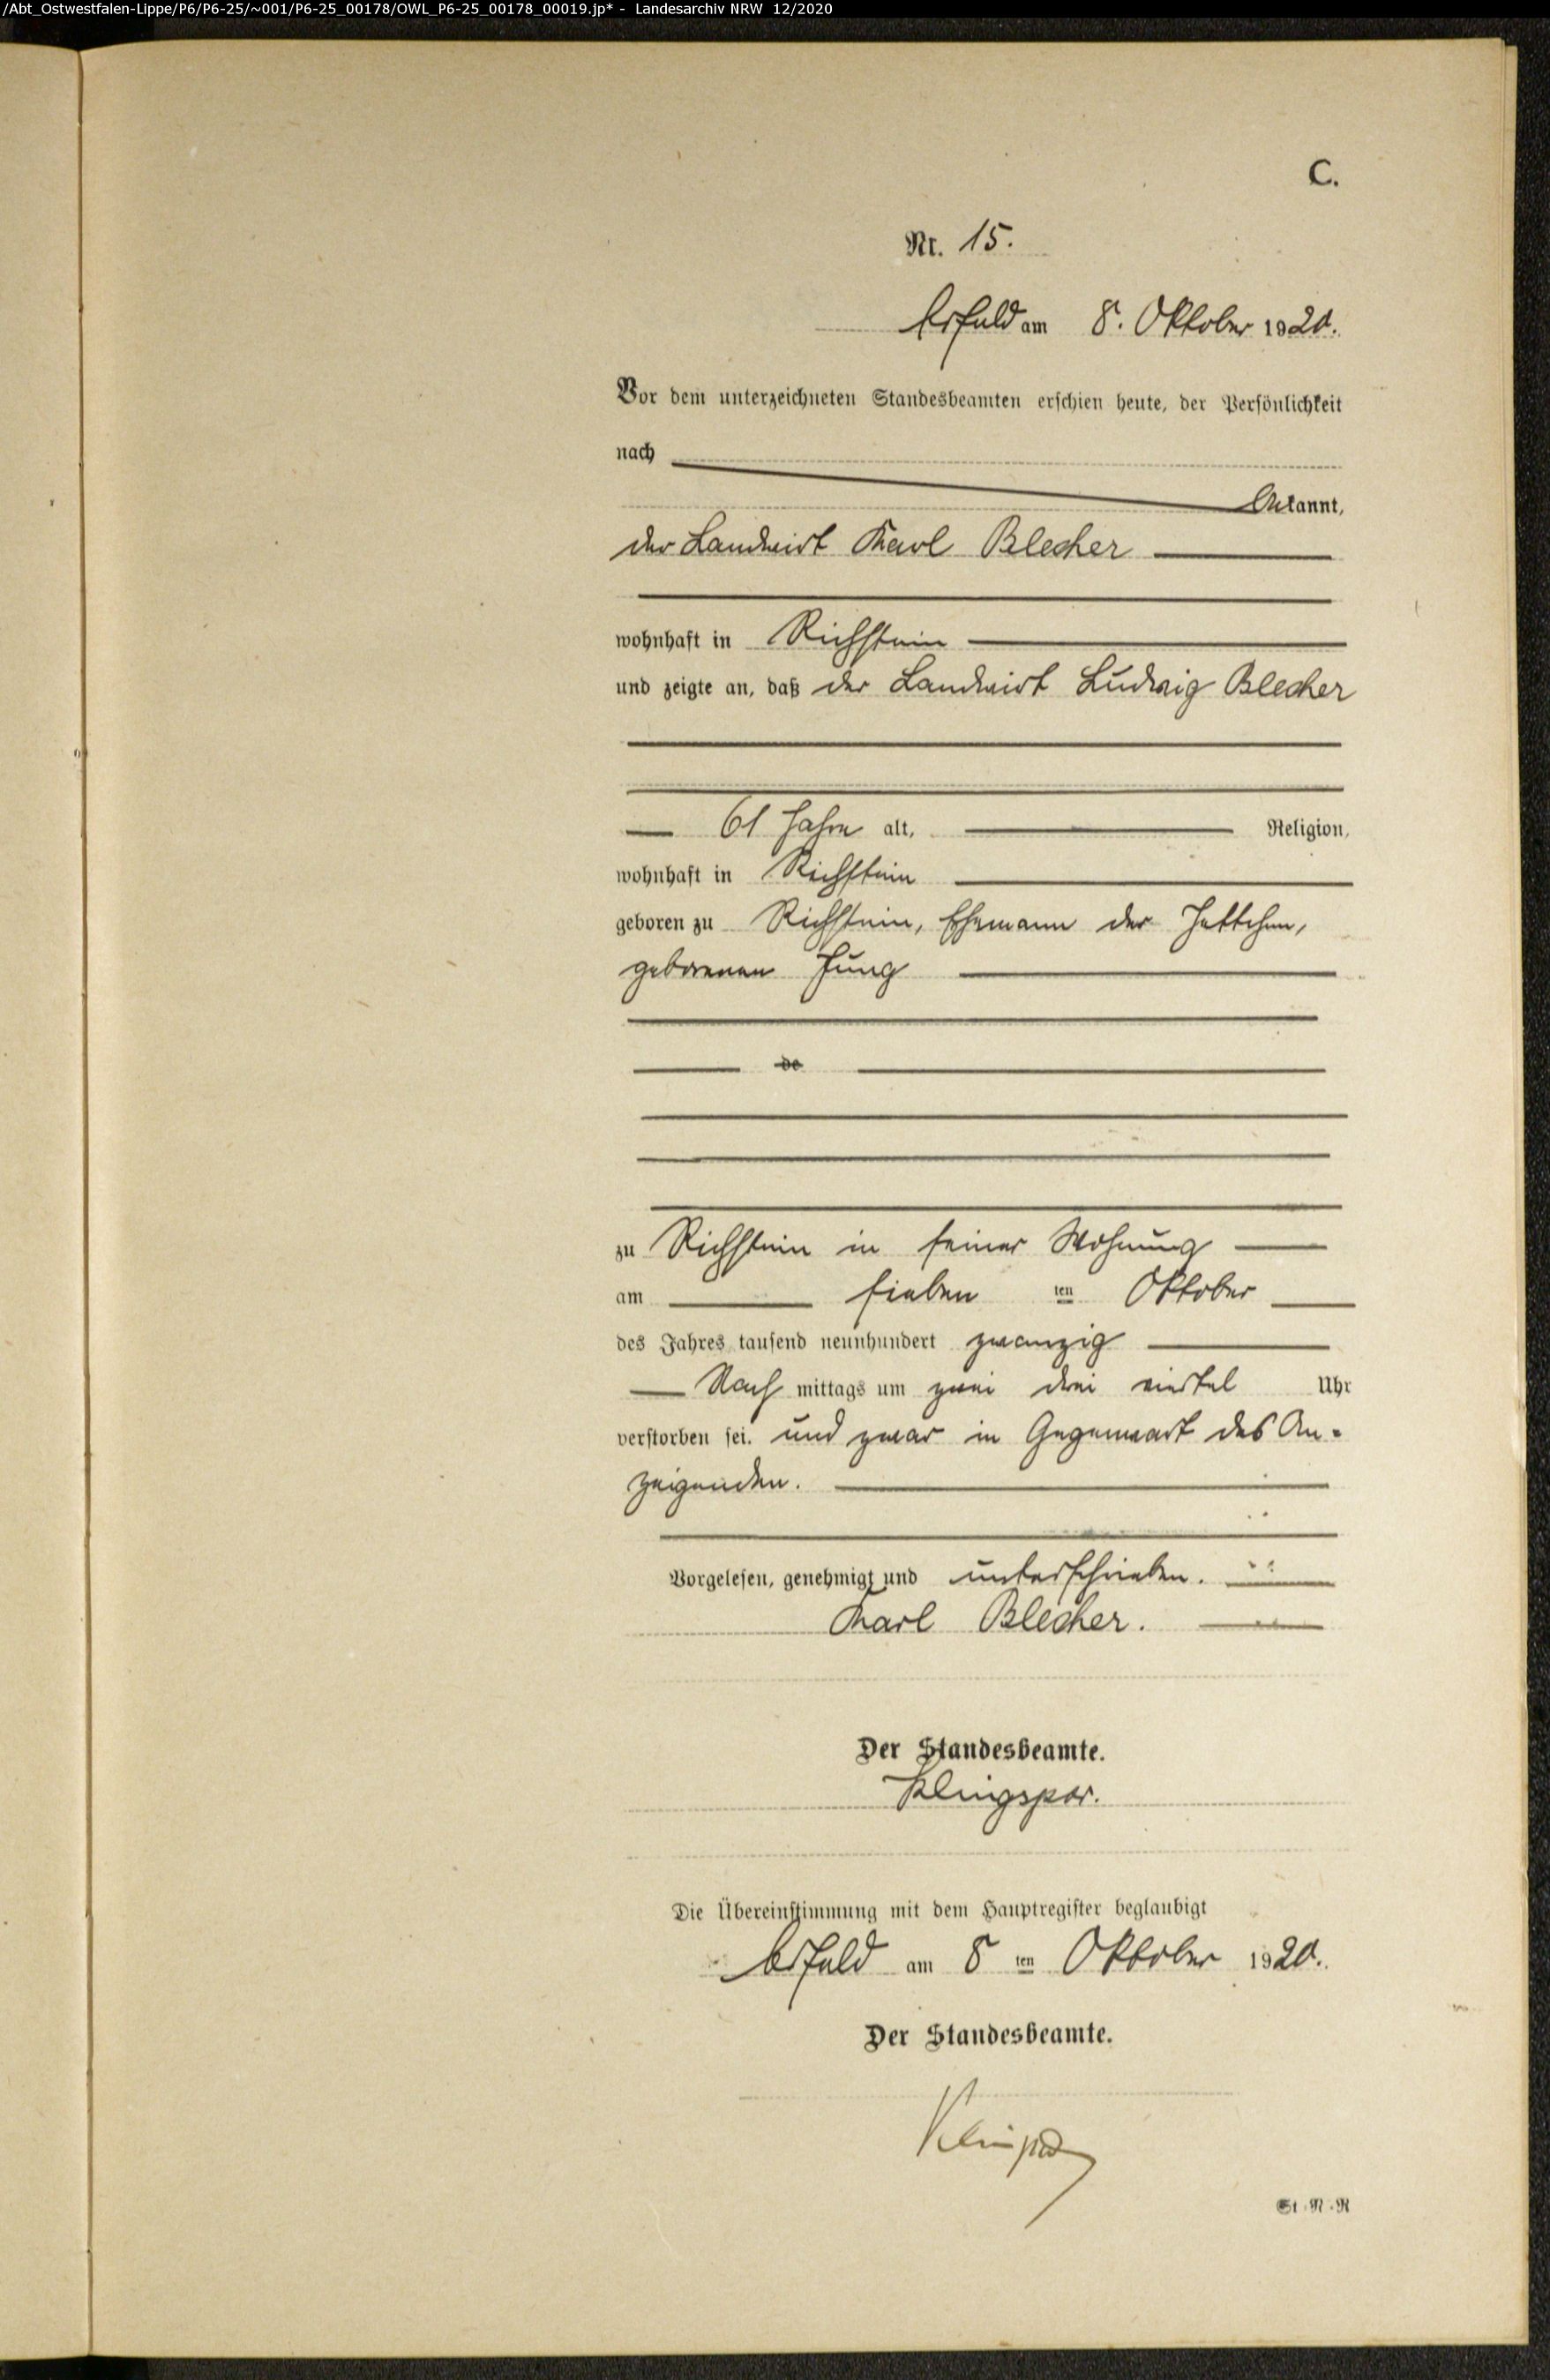 /Abt_Ostwestfalen-Lippe/P6/P6-25/~001/P6-25_00178/OWL_P6-25_00178_00019.jp* - Landesarchiv NRW 12/2020
C.
Nr. 15.
Arfeld am 8. Oktober 1920.
Vor dem unterzeichneten Standesbeamten erschien heute, der Persönlichkeit
nach
bekannt,
der Landwirt Karl Blecher
wohnhaft in Richstein
und zeigte an, daß der Landwirt Ludwig Blecher
61 Jahre alt, Religion,
wohnhaft in Richstein
geboren zu Richstein, Ehemann der Jettchen,
geborenen Jung
de
zu Richstein in seiner Wohnung
am sieben ten Oktober
des Jahres tausend neunhundert zwanzig
Nach mittags um zwei drei viertel Uhr
verstorben sei. und zwar in Gegenwart des An-
zeigenden.
Vorgelesen, genehmigt und unterschrieben.
Karl Blecher.
Der Standesbeamte.
Klingspor.
Die Übereinstimmung mit dem Hauptregister beglaubigt
Arfeld am 8 ten Oktober 1920.
Der Standesbeamte.
Klingspor
St. N. R